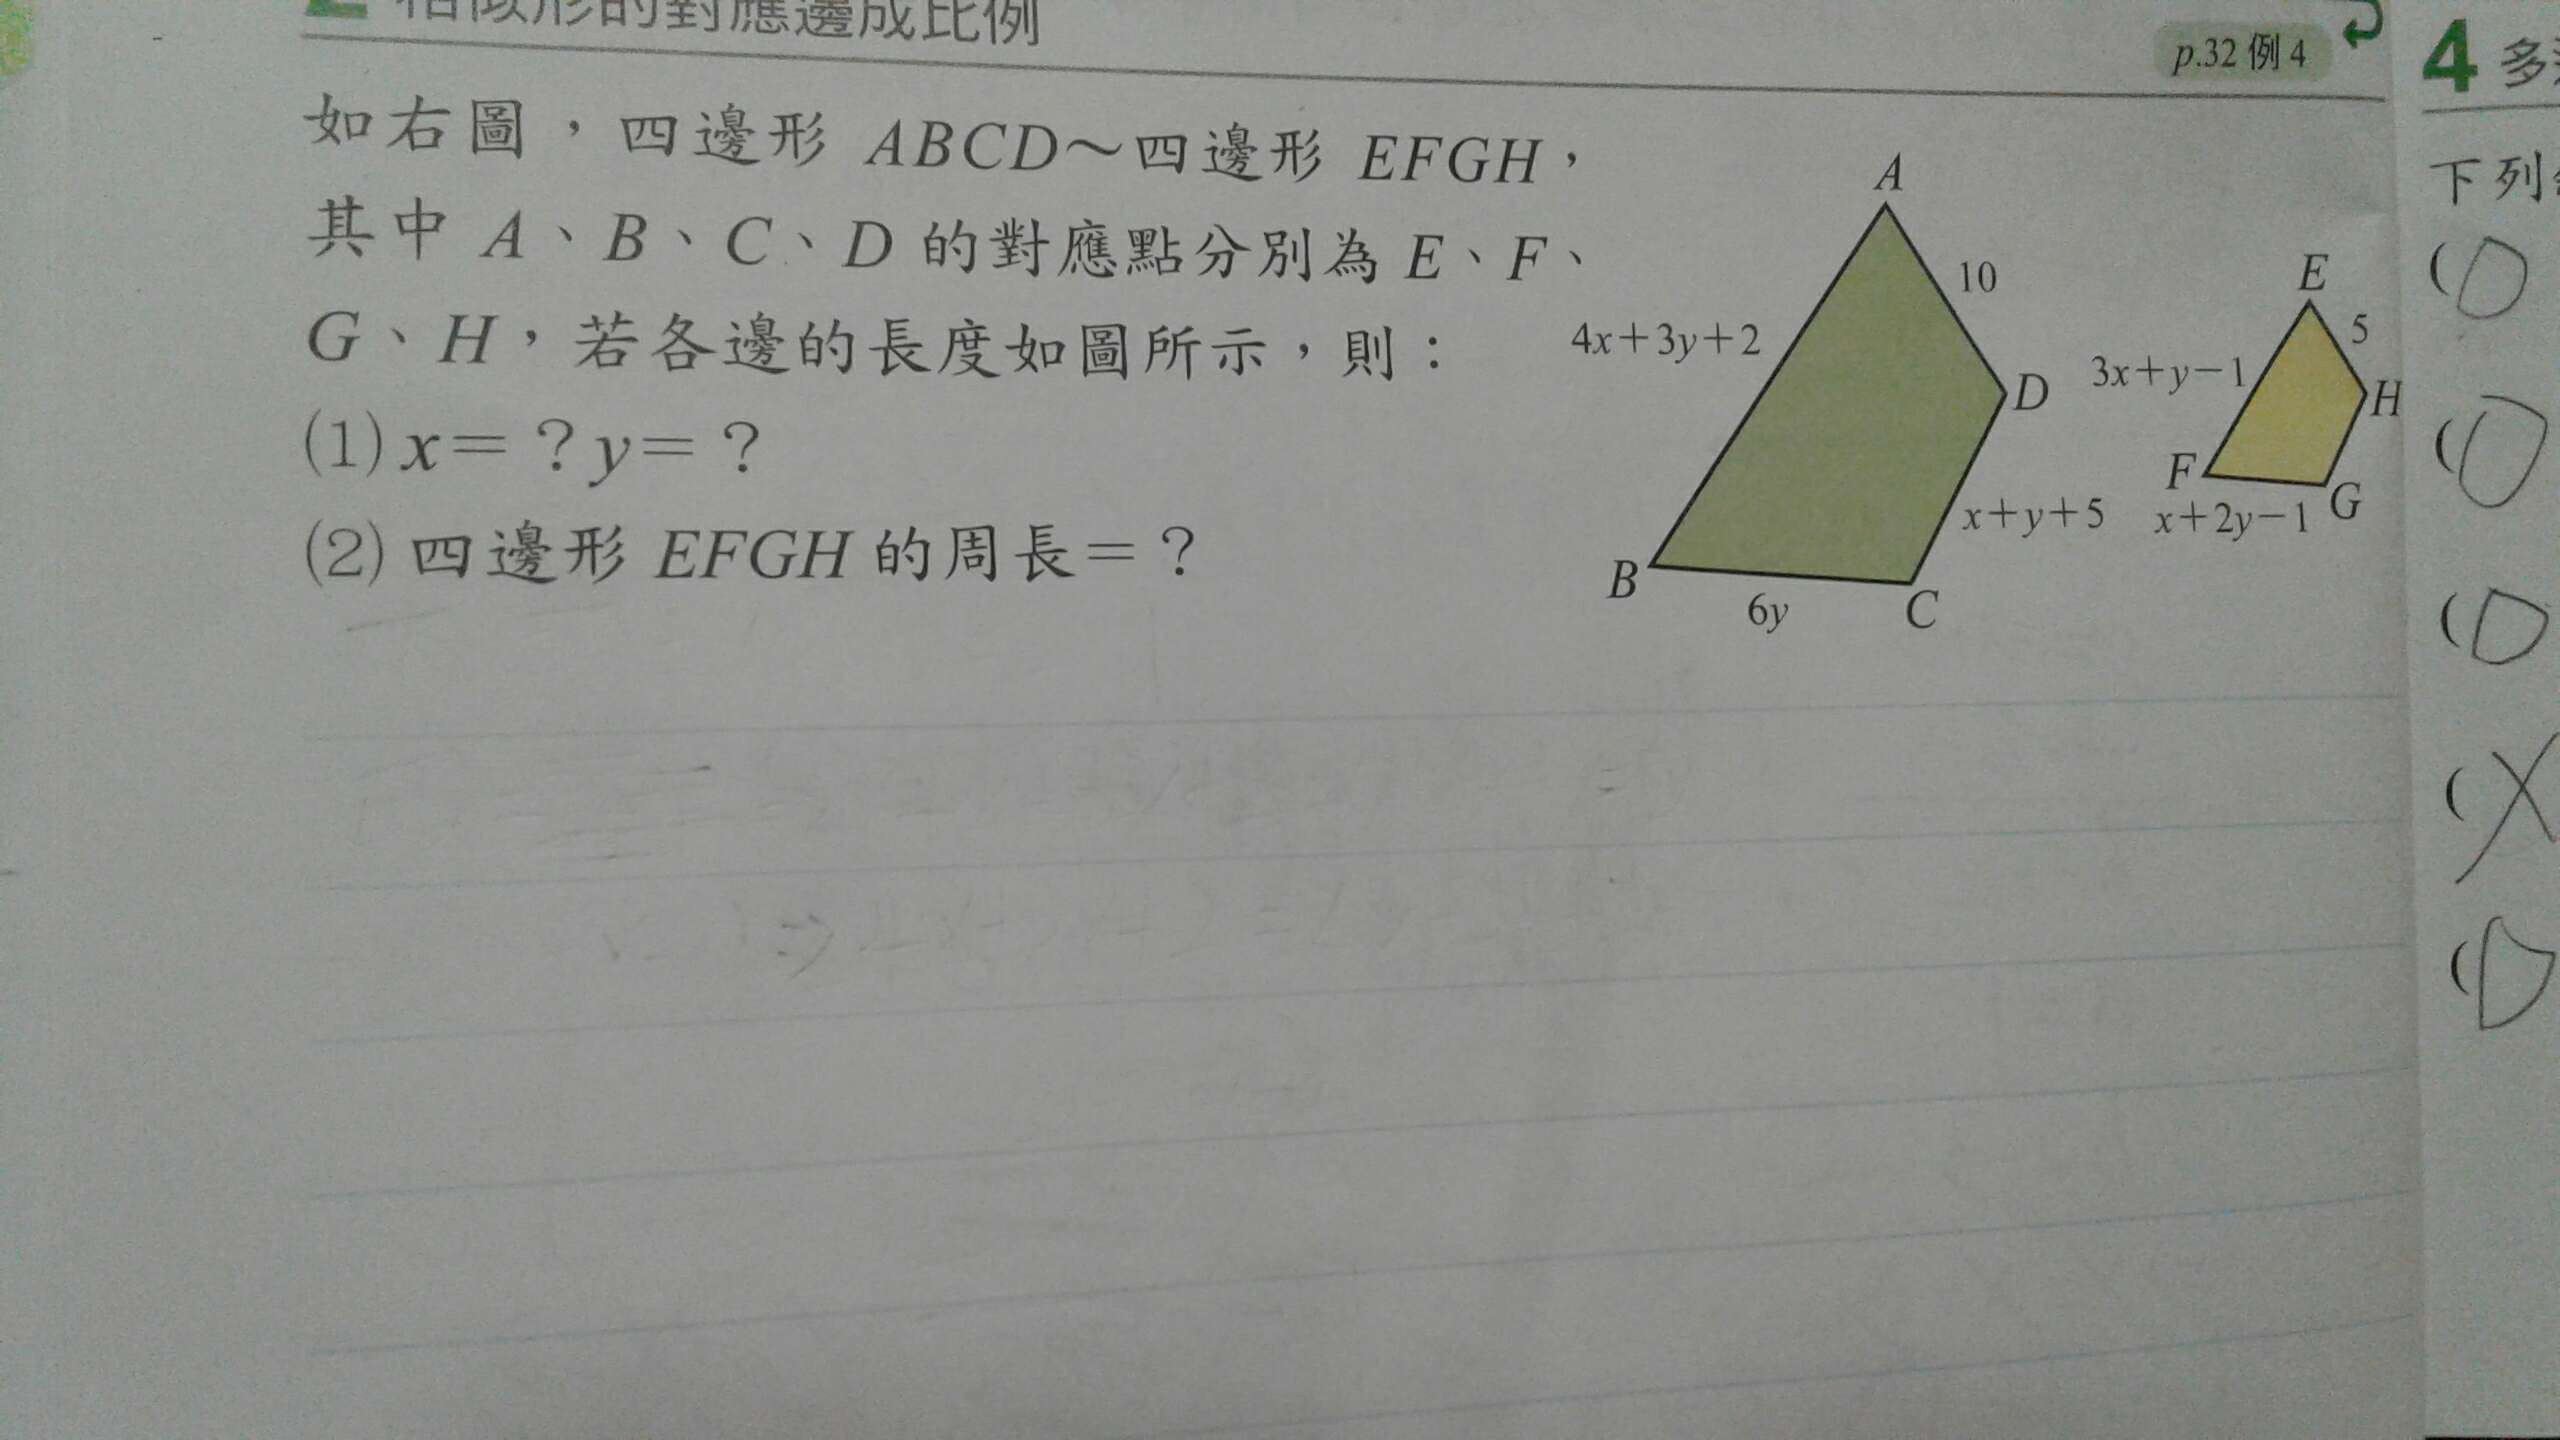 相似形的對應邊成比例
p.32 例 4
如右圖，四邊形 ABCD～四邊形 EFGH，
其中 A、B、C、D 的對應點分別為 E、F、
G、H，若各邊的長度如圖所示，則：
(1) x=？y=？
(2) 四邊形 EFGH 的周長=？
A
10
4x+3y+2
D
x+y+5
B
6y
C
E
5
3x+y-1
H
F
x+2y-1
G
4 多
下列
(
(
(
(
(